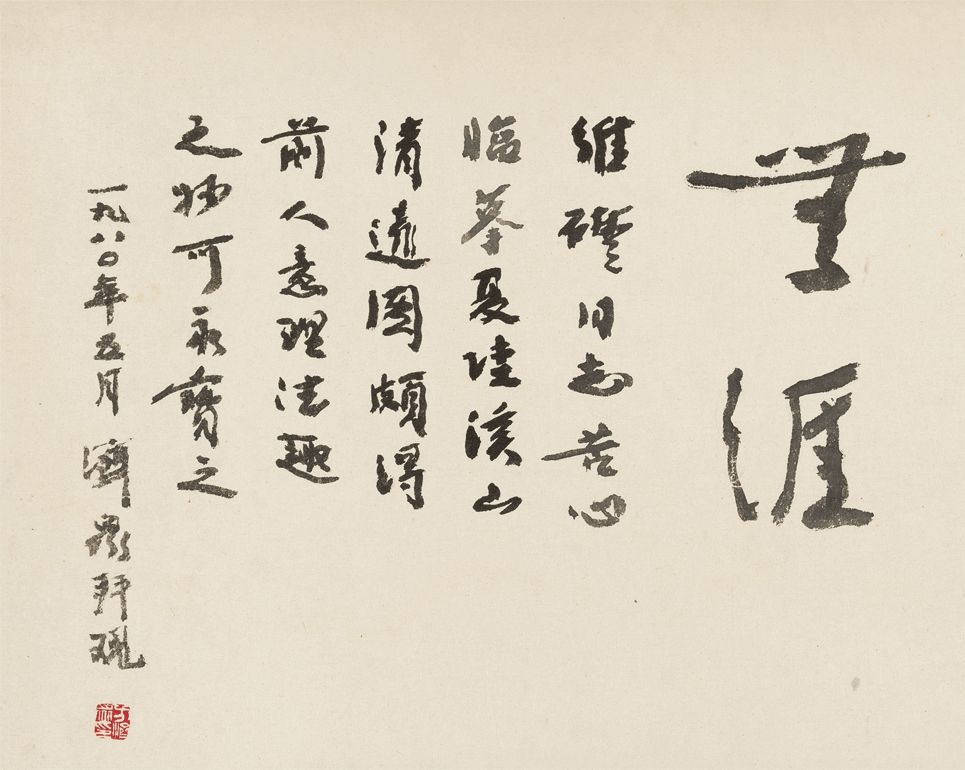 無涯
維 同志苦心
臨摹夏珪溪山
清遠圖頗得
前人意理法趣
之妙可永寶之
一九八〇年五月 濟眾拜觀